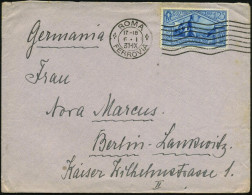 Germania
ROMA
FERROVIA
Frau
Nora Marcus.
Berlin-Lankwitz
Kaiser Wilhelmstrasse 12
II.